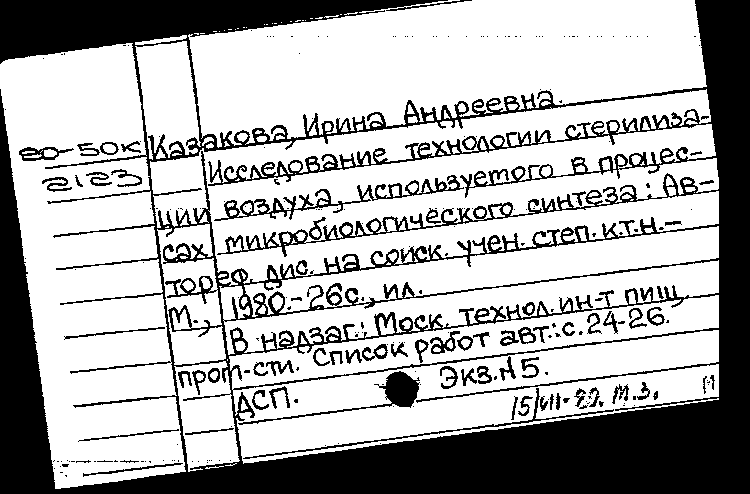 80-50к Казакова, Ирина Андреевна.
2123 Исследование технологии стерилиза-
ции воздуха, используемого в процес-
сах микробиологического синтеза: Ав-
тореф. дис. на соиск. учен. степ. к.т.н.-
М., 1980.-26с., ил.
В надзаг.: Моск. технол. ин-т пищ.
пром-сти. Список работ авт.: с.24-26.
ДСП. Экз.№5.
15/VII-82. М.З.